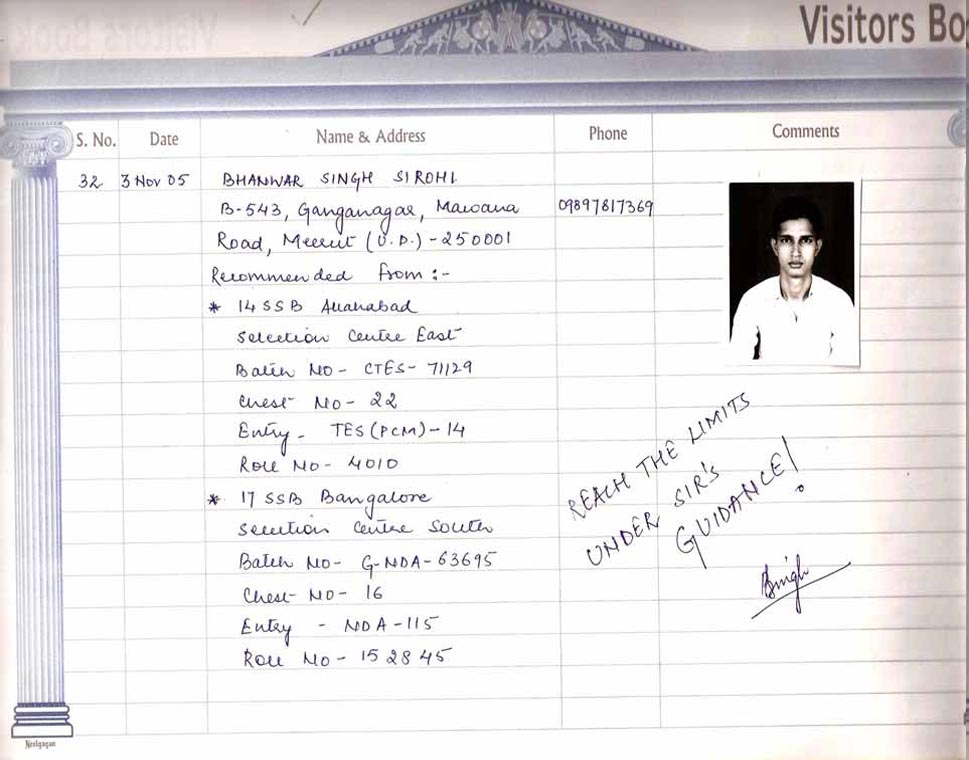 Visitors Bo
S. No. Date Name & Address Phone Comments
32 3 Nov 05 BHANWAR SINGH SIROHI
B-543, Ganganagar, Mawana 09897817369
Road, Meerut (U.P.) - 250001
Recommended from :-
* 14 SSB Allahabad
Selection Centre East
Batch No - CTES - 71129
Chest No - 22
Entry - TES (PCM) - 14
Roll No - 4010
* 17 SSB Bangalore
Selection Centre South
Batch No - G-NDA - 63695
Chest No - 16
Entry - NDA - 115
Roll No - 152845
REACH THE LIMITS
UNDER SIR'S
GUIDANCE!
BSingh
Neelgagan